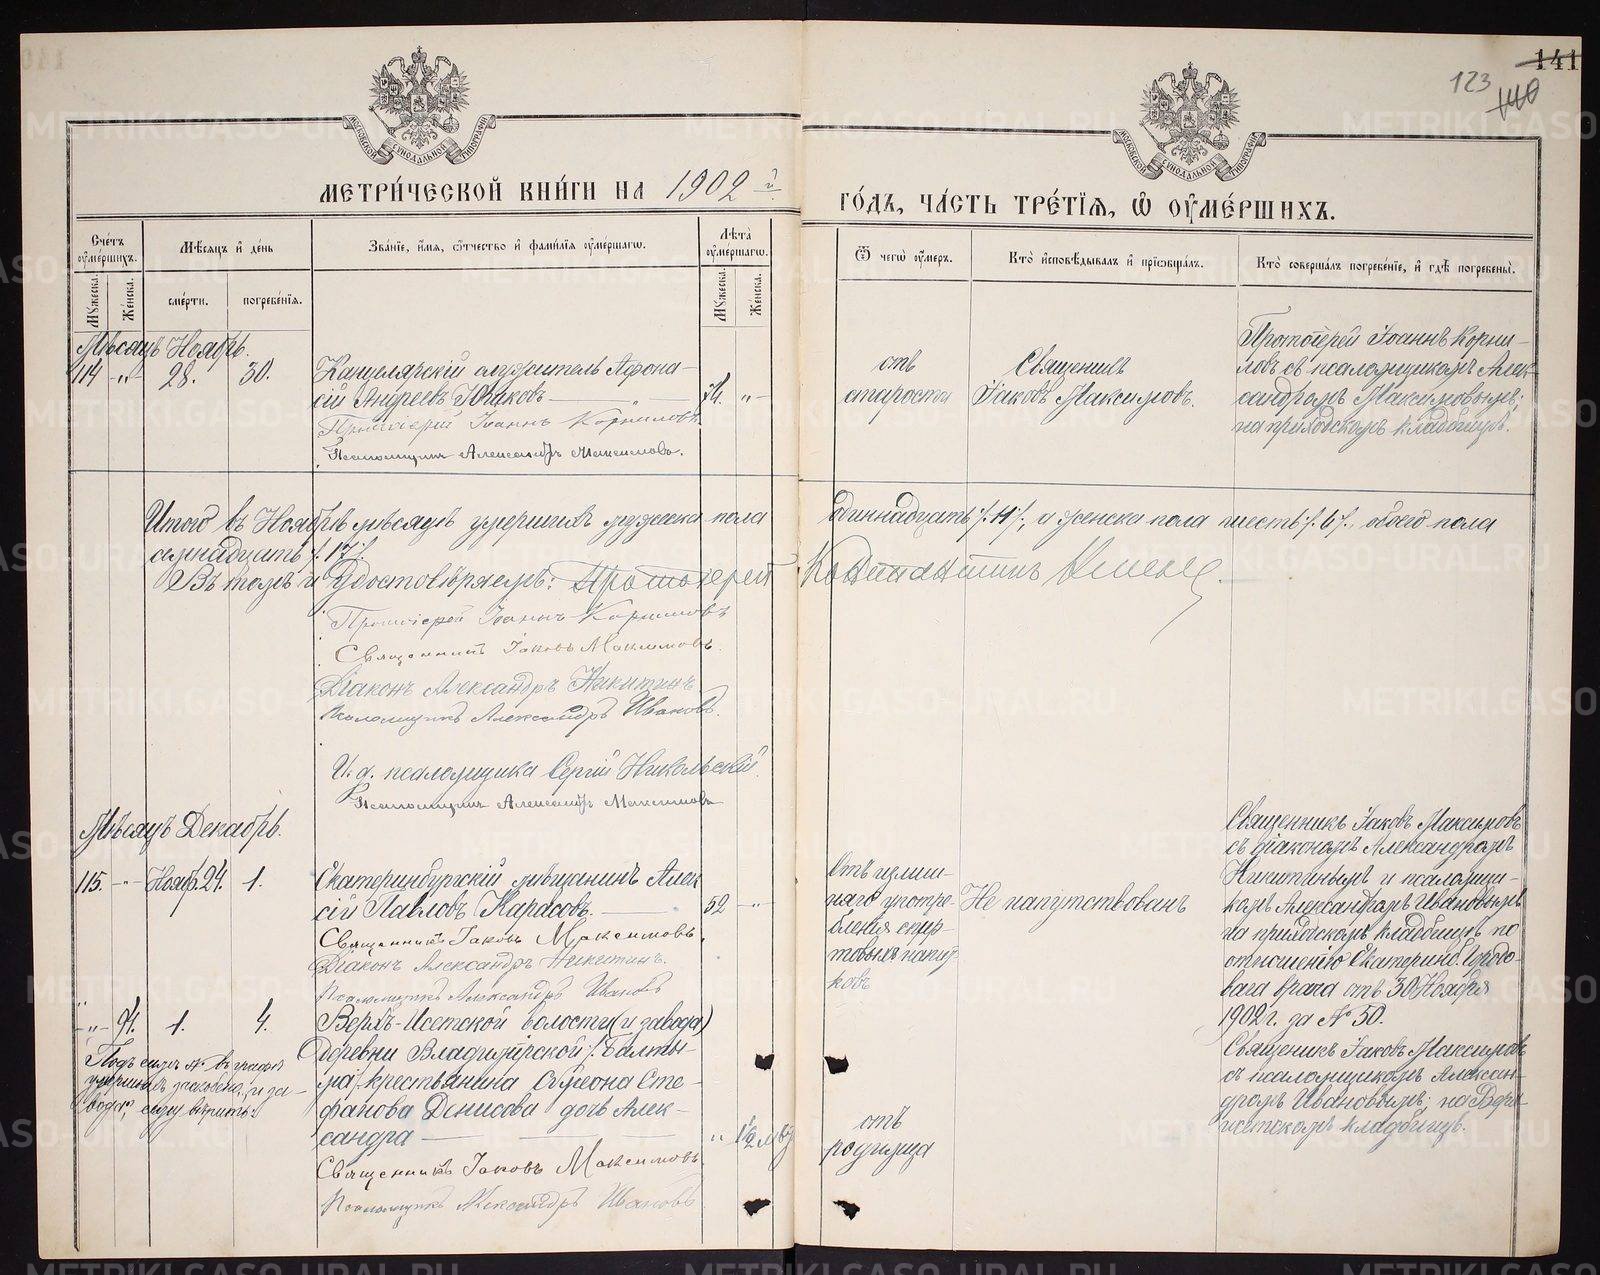 141
123
140
МОСКОВСКОЙ СѴНОДАЛЬНОЙ ТИПОГРАФІИ
МОСКОВСКОЙ СѴНОДАЛЬНОЙ ТИПОГРАФІИ
МЕТРИ́ЧЕСКОЙ КНИ́ГИ НА 1902 г.
ГО́ДЪ, ЧА́СТЬ ТРЕ́ТЇѦ, Ѡ҆ ОУ҆МЕ́РШИХЪ.
Сче́тъ оу҆ме́ршихъ.
Мꙋ́жеска.
Же́нска.
Мѣ́сѧцъ и҆ де́нь
сме́рти.
погребе́нїѧ.
Зва́нїе, и҆́мѧ, ѻ҆́тчество и҆ фами́лїѧ оу҆ме́ршагѡ.
Лѣ́та оу҆ме́ршагѡ.
Мꙋ́жеска.
Же́нска.
Ѿ чегѡ̀ оу҆́меръ.
Кто̀ и҆сповѣ́дывалъ и҆ прїѻбща́лъ.
Кто̀ соверша́лъ погребе́нїе, и҆ гдѣ̀ погребены̀.
Мѣсяцъ Ноябрь.
114 -"- 28. 30.
Канцелярскій служитель Афона-
сій Андреевъ Южаковъ
74. "-
Протоіерей Іоаннъ Корниловъ
Псаломщикъ Александръ Максимовъ.
отъ
старости
Священикъ
Іаковъ Максимовъ.
Протоіерей Іоаннъ Корни-
ловъ съ псаломщикомъ Алек-
сандромъ Максимовымъ;
на приходскомъ кладбищѣ.
Итого въ Ноябрѣ мѣсяцѣ умершихъ мужеска пола одиннадцать /.11/., а женска пола шесть /.6/., обоего пола
семнадцать /.17/.
Въ томъ и удостовѣряемъ: Протоіерей Константинъ
Протоіерей Іоаннъ Корниловъ
Священникъ Іаковъ Максимовъ.
Діаконъ Александръ Никитинъ.
Псаломщикъ Александръ Ивановъ.
И. д. псаломщика Сергій Никольскій.
Псаломщикъ Александръ Максимовъ
Мѣсяцъ Декабрь.
115. -"- Нояб. 24. 1.
Екатеринбургскій мѣщанинъ Алек
сій Павловъ Карасовъ.
52 -"-
Священникъ Іаковъ Максимовъ.
Діаконъ Александръ Никитинъ.
Псаломщикъ Александръ Ивановъ
Отъ излиш-
няго употре-
бленія спир-
товыхъ напит-
ковъ
Не напутствованъ
Священникъ Іаковъ Максимовъ
съ діакономъ Александромъ
Никитинымъ и псаломщи-
комъ Александромъ Ивановымъ
на приходскомъ кладбищѣ по
отношенію Екатеринб. Городо-
вага врача отъ 30 Ноября
1902 г. за № 50.
-"- 91. 1. 4.
Верхъ-Исетской волости (и завода)
деревни Владимірской /. Балты-
ма/ крестьянина Симеона Сте-
фанова Денисова дочь Алек-
сандра
" 1½ мѣс
Подъ симъ № въ графѣ
умершихъ заскоблено, "и за-
вода", сему вѣрить:
Священникъ Іаковъ Максимовъ.
Псаломщикъ Александръ Ивановъ
отъ
родимца
Священикъ Іаковъ Максимовъ
съ псаломщикомъ Алексан-
дромъ Ивановымъ; на Верх-
исетскомъ кладбищѣ.
METRIKI.GASO-URAL.RU